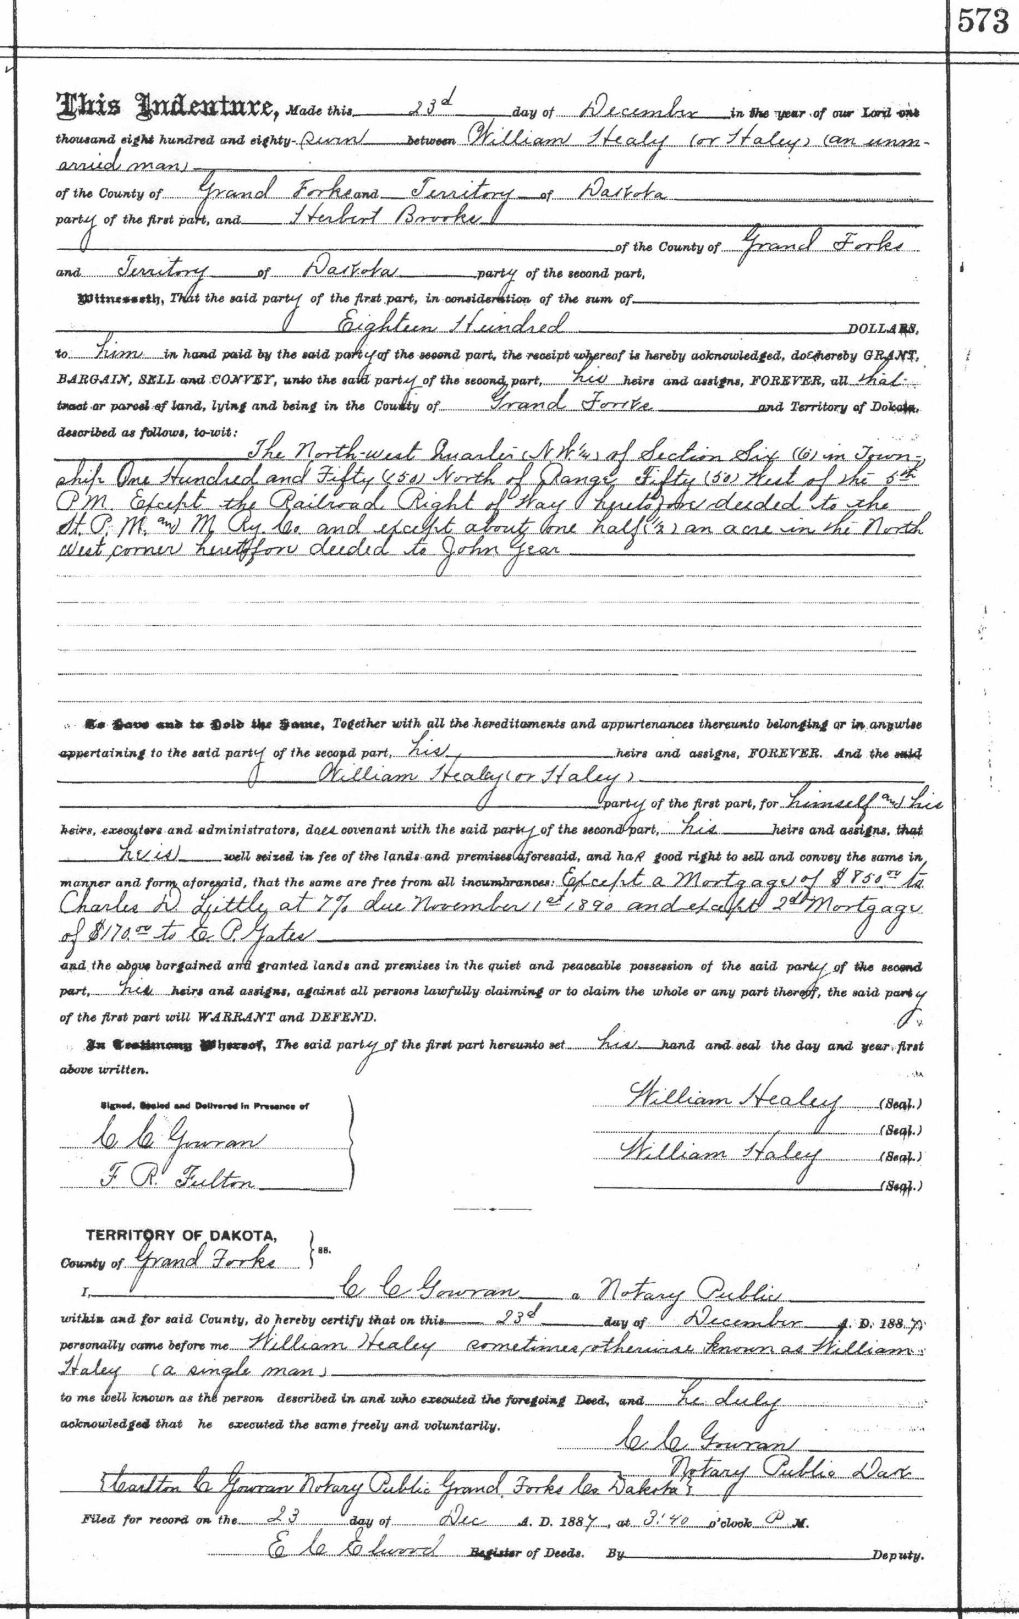 573
This Indenture, Made this 23d day of December in the year of our Lord one
thousand eight hundred and eighty-seven between William Healy (or Haley) (an unm-
arried man)
of the County of Grand Forks and Territory of Dakota
party of the first part, and Herbert Brooks
of the County of Grand Forks
and Territory of Dakota party of the second part,
Witnesseth, That the said party of the first part, in consideration of the sum of
Eighteen Hundred DOLLARS,
to him in hand paid by the said party of the second part, the receipt whereof is hereby acknowledged, does hereby GRANT,
BARGAIN, SELL and CONVEY, unto the said party of the second part, his heirs and assigns, FOREVER, all that
tract or parcel of land, lying and being in the County of Grand Forks and Territory of Dakota,
described as follows, to-wit:
The North-west Quarter (N W ¼) of Section Six (6) in Town-
ship One Hundred and Fifty (150) North of Range Fifty (50) West of the 5th
P.M. Except the Railroad Right of Way heretofore deeded to the
St. P. M. and M. Ry. Co. and except about one half (½) an acre in the North
west corner heretofore deeded to John Gear
To Have and to Hold the Same, Together with all the hereditaments and appurtenances thereunto belonging or in anywise
appertaining to the said party of the second part, his heirs and assigns, FOREVER. And the said
William Healey (or Haley)
party of the first part, for himself and his
heirs, executors and administrators, does covenant with the said party of the second part, his heirs and assigns, that
he is well seized in fee of the lands and premises aforesaid, and has good right to sell and convey the same in
manner and form aforesaid, that the same are free from all incumbrances: Except a Mortgage of $850.00 to
Charles D. Little at 7% due November 1st 1890 and except 2d Mortgage
of $170.00 to C P. Gates
and the above bargained and granted lands and premises in the quiet and peaceable possession of the said party of the second
part, his heirs and assigns, against all persons lawfully claiming or to claim the whole or any part thereof, the said party
of the first part will WARRANT and DEFEND.
In Testimony Whereof, The said party of the first part hereunto set his hand and seal the day and year first
above written.
Signed, Sealed and Delivered in Presence of
C C Gowran
F. R. Fulton
William Healey (Seal.)
(Seal.)
William Haley (Seal.)
(Seal.)
TERRITORY OF DAKOTA,
County of Grand Forks } ss.
I, C C Gowran a Notary Public
within and for said County, do hereby certify that on this 23d day of December A. D. 1887,
personally came before me William Healey sometimes otherwise known as William
Haley (a single man)
to me well known as the person described in and who executed the foregoing Deed, and he duly
acknowledged that he executed the same freely and voluntarily.
C C Gowran
Notary Public Dak
{Carlton C Gowran Notary Public Grand Forks Co Dakota}
Filed for record on the 23 day of Dec A. D. 1887, at 3:40 o'clock P M.
E C Elwood Register of Deeds. By Deputy.